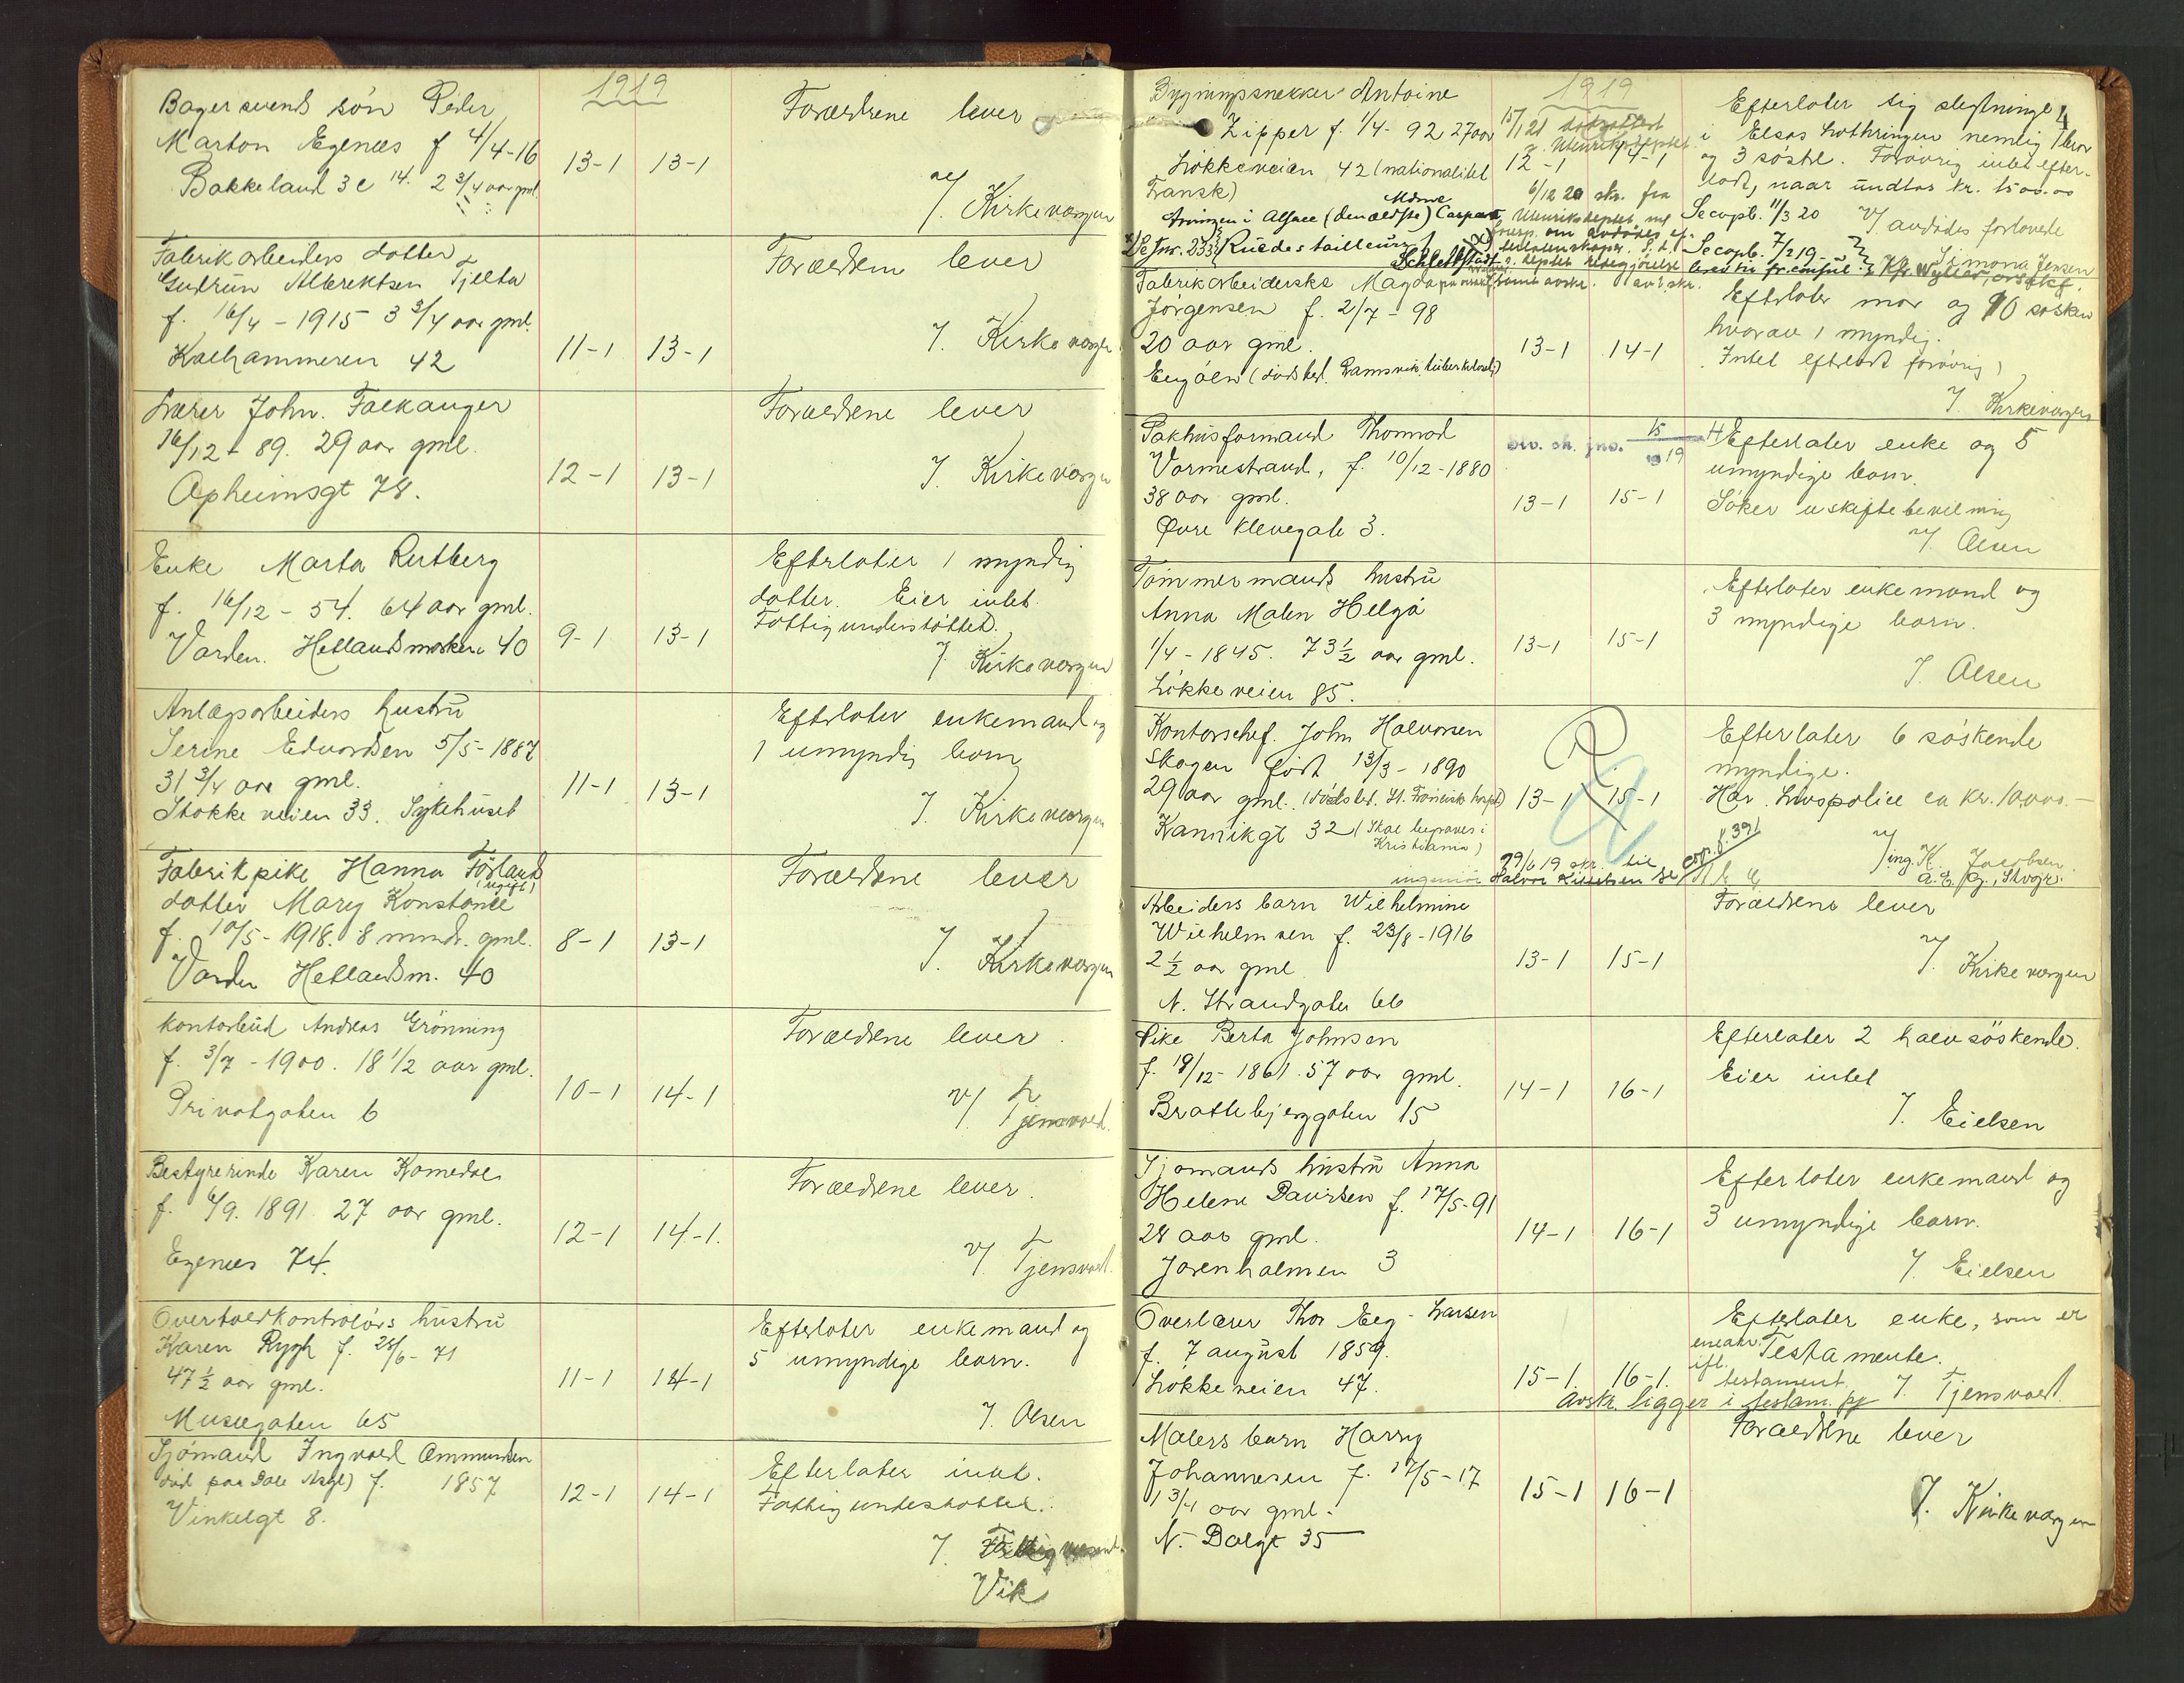 1919
Bagersvends søn Peder
Marton Egenæs f 4/4-16
Bakkeland 3c 14. 2 3/4 aar gml.
13-1 13-1
Forældrene lever
v/. Kirkevergen
Fabrikarbeiders datter
Gudrun Albrektsen Tjelta
f. 16/4 - 1915 3 3/4 aar gml.
Kalhammeren 42
11-1 13-1
Forældrene lever
v/. Kirkevergen
Lærer John. Falkanger
16/12 - 89. 29 aar gml.
Opheimsgt 78.
12-1 13-1
Forældrene lever
v/. Kirkevergen
Enke Marta Rutberg
f. 16/12 - 54. 64 aar gml.
Varden. Hetlandsmarken 40
9-1 13-1
Efterlater 1 myndig
datter. Eier intet.
Fattigunderstøttet.
v/. Kirkevergen
Anlægsarbeiders hustru
Serine Edvardsen 5/5-1887
31 3/4 aar gml.
Stokkeveien 33. Sykehuset
11-1 13-1
Efterlater enkemand og
1 umyndig barn
v/. Kirkevergen
Fabrikpike Hanna Førland
(ugift)
datter Mary Konstance
f. 10/5 - 1918. 8 mndr. gml.
Varden Hetlandsm. 40
8-1 13-1
Forældrene lever
v/. Kirkevergen
Kontorbud Andreas Grønning
f. 3/7 - 1900. 18 1/2 aar gml.
Privatgaten 6
10-1 14-1
Forældrene lever.
v/. Tjensvold.
Bestyrerinde Karen Komedal
f. 6/9. 1891 27 aar gml.
Egenæs 74.
12-1 14-1.
Forældrene lever.
v/. Tjensvold.
Overtoldkontrolørs hustru
Karen Rygh f. 28/6 - 71
47 1/2 aar gml.
Musegaten 65
11-1 14-1
Efterlater enkemand og
5 umyndige barn.
v/. Olsen
Sjømand Ingvald Ommundsen
(død paa Dale Asyl) f. 1857
Vinkelgt 8.
12-1 14-1
Efterlater intet.
Fattigunderstøttet.
v/.
Vik
1919
4
Bygningssnekker Antoine
Zipper f. 1/4 - 92 27 aar
Løkkeveien 42 (nationalitet
Fransk)
15/1 21
12-1 14-1
6/12 20 skr. fra
Utenriksdeptet
Efterlater sig slegtninge
i Elsas Lothringen nemlig 1 bror
og 3 søstre. Forøvrig intet efter-
ladt, naar undtas kr. 1500.00
Se copb. 11/3 20 v/ avdødes forlovede
Se copb. 7/2 19
Simona Jensen
Fabrikarbeiderske Magda
Jørgensen f. 2/7 - 98
20 aar gml.
Engøen (dødsted. Ramsvik tuberklosehj)
13-1 14-1
Efterlater mor og 10 søsken
hvorav 1 myndig.
Intet efterladt forøvrig
v/. Kirkevergen
Pakhusformand Thormod
Varmestrand, f. 10/12-1880
38 aar gml.
Øvre Klevegate 3.
15/19
13-1 15-1
Efterlater enke og 5
umyndige barn.
Søker uskiftebevilning
v/. Olsen
Tømmermands hustru
Anna Malen Helgø
1/4 - 1845. 73 1/2 aar gml.
Løkkeveien 85.
13-1 15-1
Efterlater enkemand og
3 myndige barn.
v/. Olsen
Kontorschef. John Halvorsen
Skogen født 13/3 - 1890
29 aar gml. (dødsted. St. Francisk hospt)
Kannikgt 32 (Skal begraves i
Kristiania)
13-1 15-1
29/6 19 skr. til
ingeniør Halvor
cop. f. 391
Efterlater 6 søskende
myndige.
Har Livspolice ca kr. 10000.-
v/ ing. K. Jacobsen
Arbeiders barn Wilhelmine
Wilhelmsen f. 23/8 - 1916
2 1/2 aar gml
N. Strandgaten 66
13-1 15-1
Forældrene lever
v/. Kirkevergen
Pike Berta Johnsen
f. 18/12 - 1861. 57 aar gml.
Brattebjerggaten 15
14-1 16-1
Efterlater 2 halvsøskende.
Eier intet
v/. Eielsen
Sjømands hustru Anna
Helene Davidsen f. 17/5-91
28 aar gml.
Jorenholmen 3
14-1 16-1
Efterlater enkemand og
3 umyndige barn.
v/. Eielsen
Overlærer Thor Eeg-Larsen
f. 7 august 1859.
Løkkeveien 47.
15-1. 16-1.
Efterlater enke, som er
enearv. Testamente.
ifl. testament
v/. Tjensvold
Avskr. ligger i testam. pp
Malers barn Harry
Johannesen f. 17/5-17
1 3/4 aar gml.
N. Dalgt 35
15-1 16-1
Forældrene lever
v/. Kirkevergen